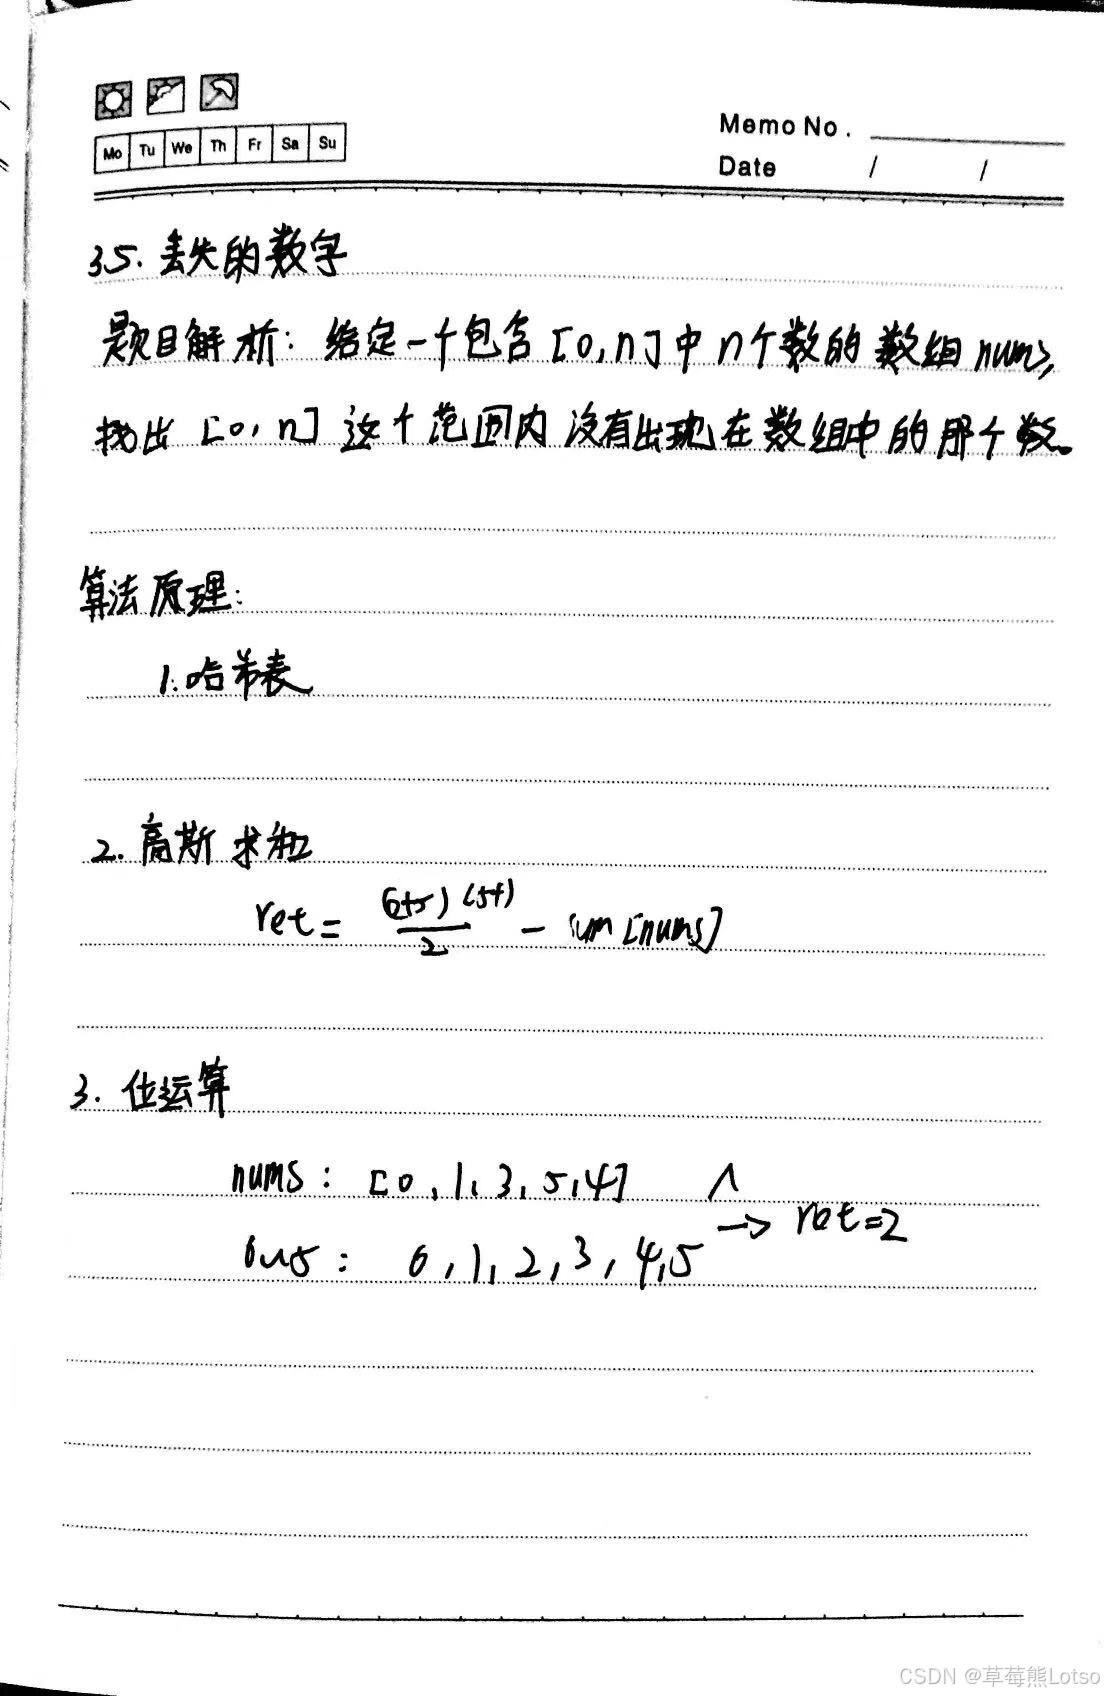 Memo No.
Mo Tu We Th Fr Sa Su
Date / /
35. 丢失的数字
题目解析: 给定一个包含[0,n]中n个数的数组nums,
找出[0,n]这个范围内没有出现在数组中的那个数。
算法原理:
1. 哈希表
2. 高斯求和
ret = (0+5)(5+1)/2 - sum[nums]
3. 位运算
nums: [0,1,3,5,4] ^
→ ret=2
0~5: 0,1,2,3,4,5
CSDN @草莓熊Lotso